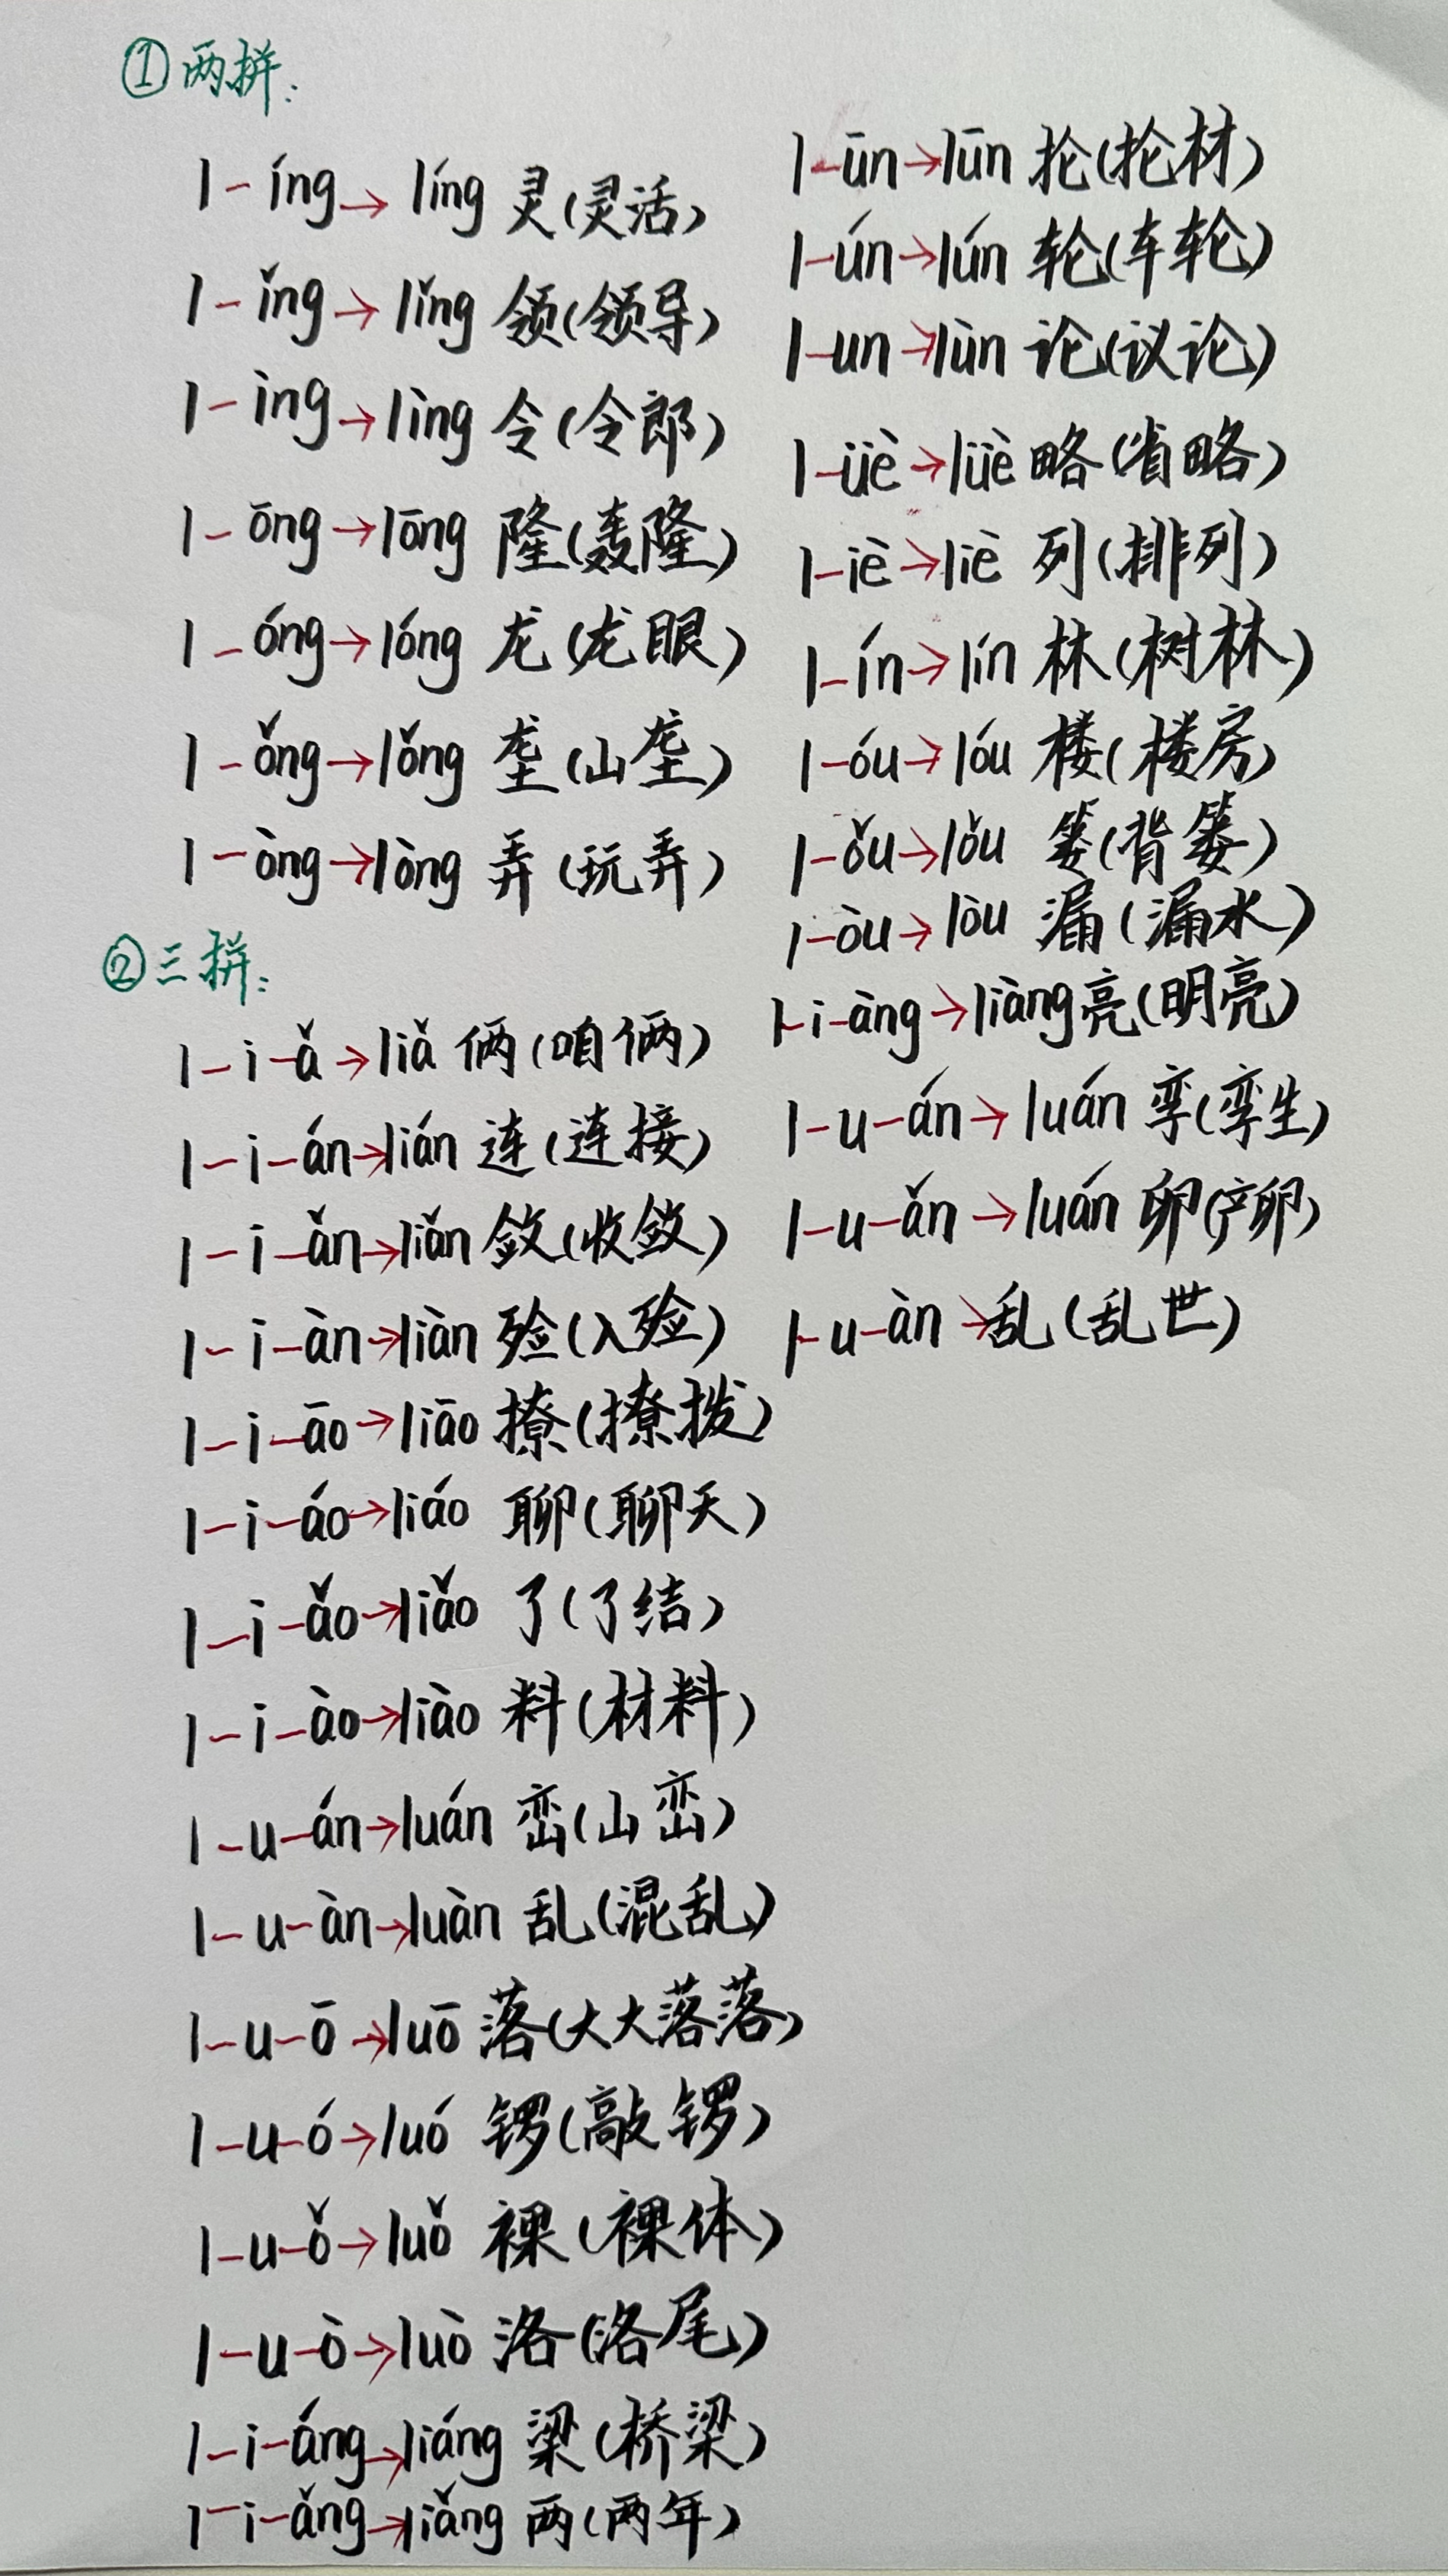 ①两拼：
l-íng→líng 灵(灵活)
l-ǐng→lǐng 领(领导)
l-ìng→lìng 令(令郎)
l-ōng→lōng 隆(轰隆)
l-óng→lóng 龙(龙眼)
l-ǒng→lǒng 垄(山垄)
l-òng→lòng 弄(玩弄)
②三拼：
l-i-ǎ→liǎ 俩(咱俩)
l-i-án→lián 连(连接)
l-i-ǎn→liǎn 敛(收敛)
l-i-àn→liàn 殓(入殓)
l-i-āo→liāo 撩(撩拨)
l-i-áo→liáo 聊(聊天)
l-i-ǎo→liǎo 了(了结)
l-i-ào→liào 料(材料)
l-u-án→luán 峦(山峦)
l-u-àn→luàn 乱(混乱)
l-u-ō→luō 落(大大落落)
l-u-ó→luó 锣(敲锣)
l-u-ǒ→luǒ 裸(裸体)
l-u-ò→luò 洛(洛尾)
l-i-áng→liáng 梁(桥梁)
l-i-ǎng→liǎng 两(两年)
l-ūn→lūn 抡(抡材)
l-ún→lún 轮(车轮)
l-un→lùn 论(议论)
l-üè→lüè 略(省略)
l-iè→liè 列(排列)
l-ín→lín 林(树林)
l-óu→lóu 楼(楼房)
l-ǒu→lǒu 篓(背篓)
l-òu→lòu 漏(漏水)
l-i-àng→liàng 亮(明亮)
l-u-án→luán 孪(孪生)
l-u-ǎn→luán 卵(产卵)
l-u-àn→乱(乱世)